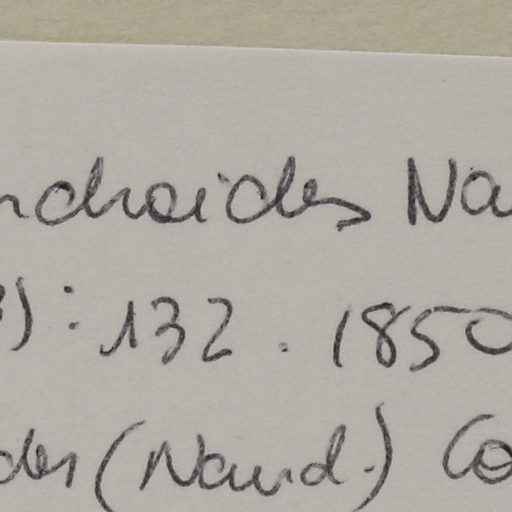 ndroides Na
3): 132. 1850
des (Naud.) Co